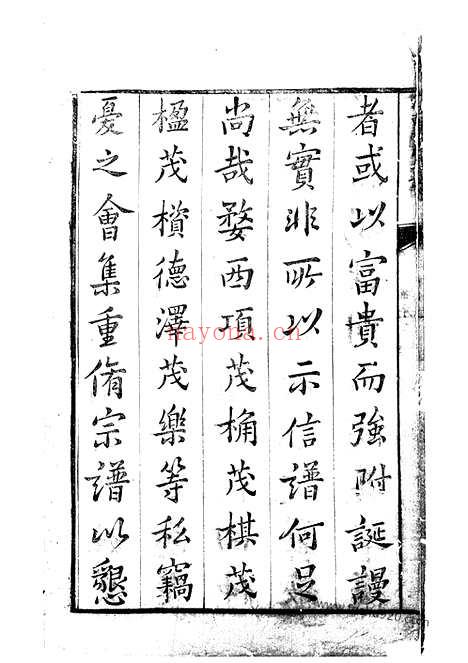 者或以富貴而強附誕謾
無實非所以示信譜何足
尚哉婺西項茂桷茂棋茂
楹茂櫍德澤茂樂等私竊
憂之會集重脩宗譜以懇
nayona.cn